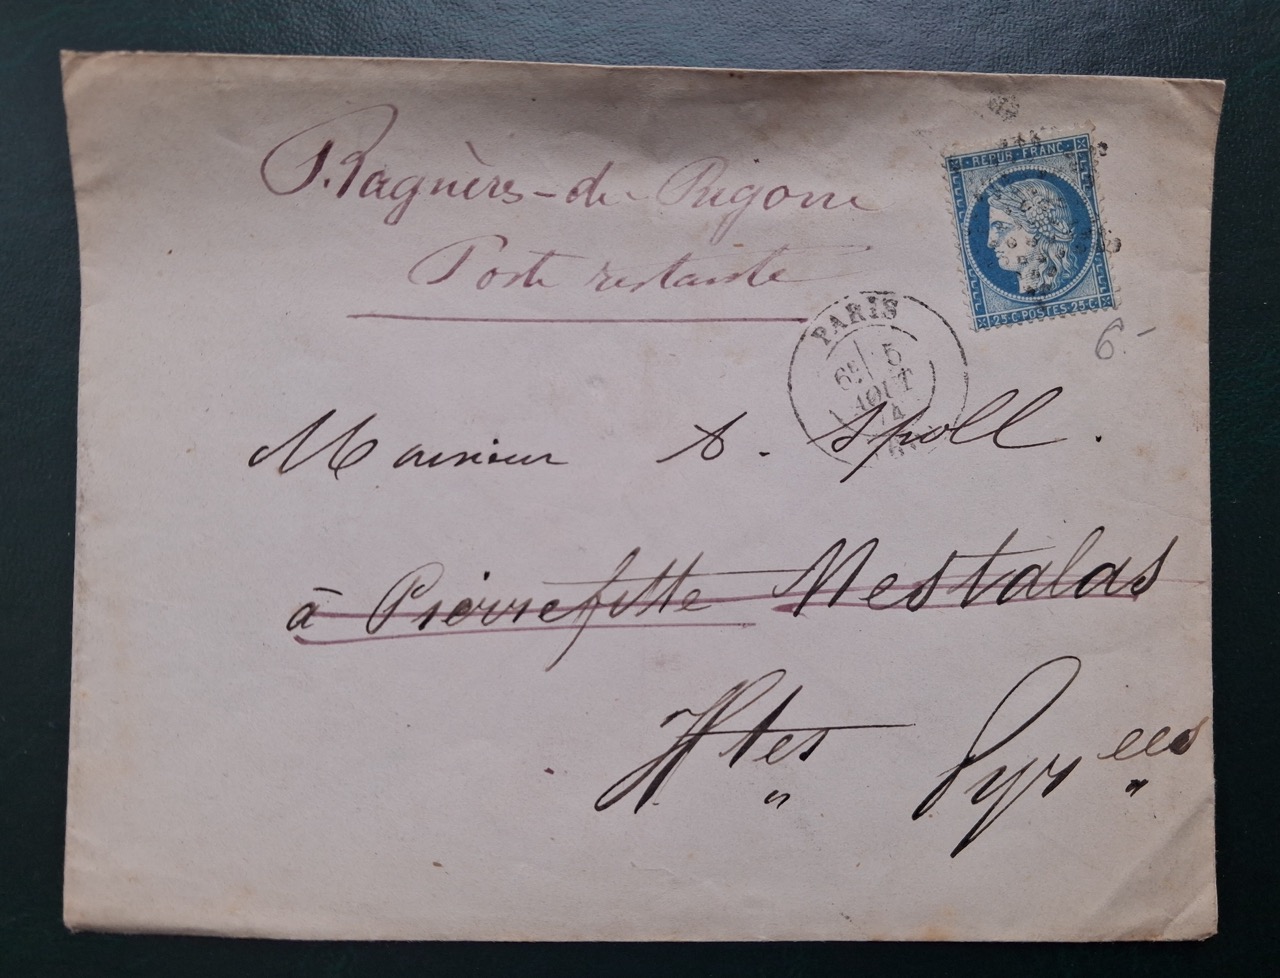 Bagnères-de-Bigorre
Poste restante
REPUB · FRANC ·
25·C·POSTES·25·C·
6.-
PARIS
6E 5
AOUT
74
Monsieur A. Spoll.
à Pierrefitte Nestalas
Htes Pyrées